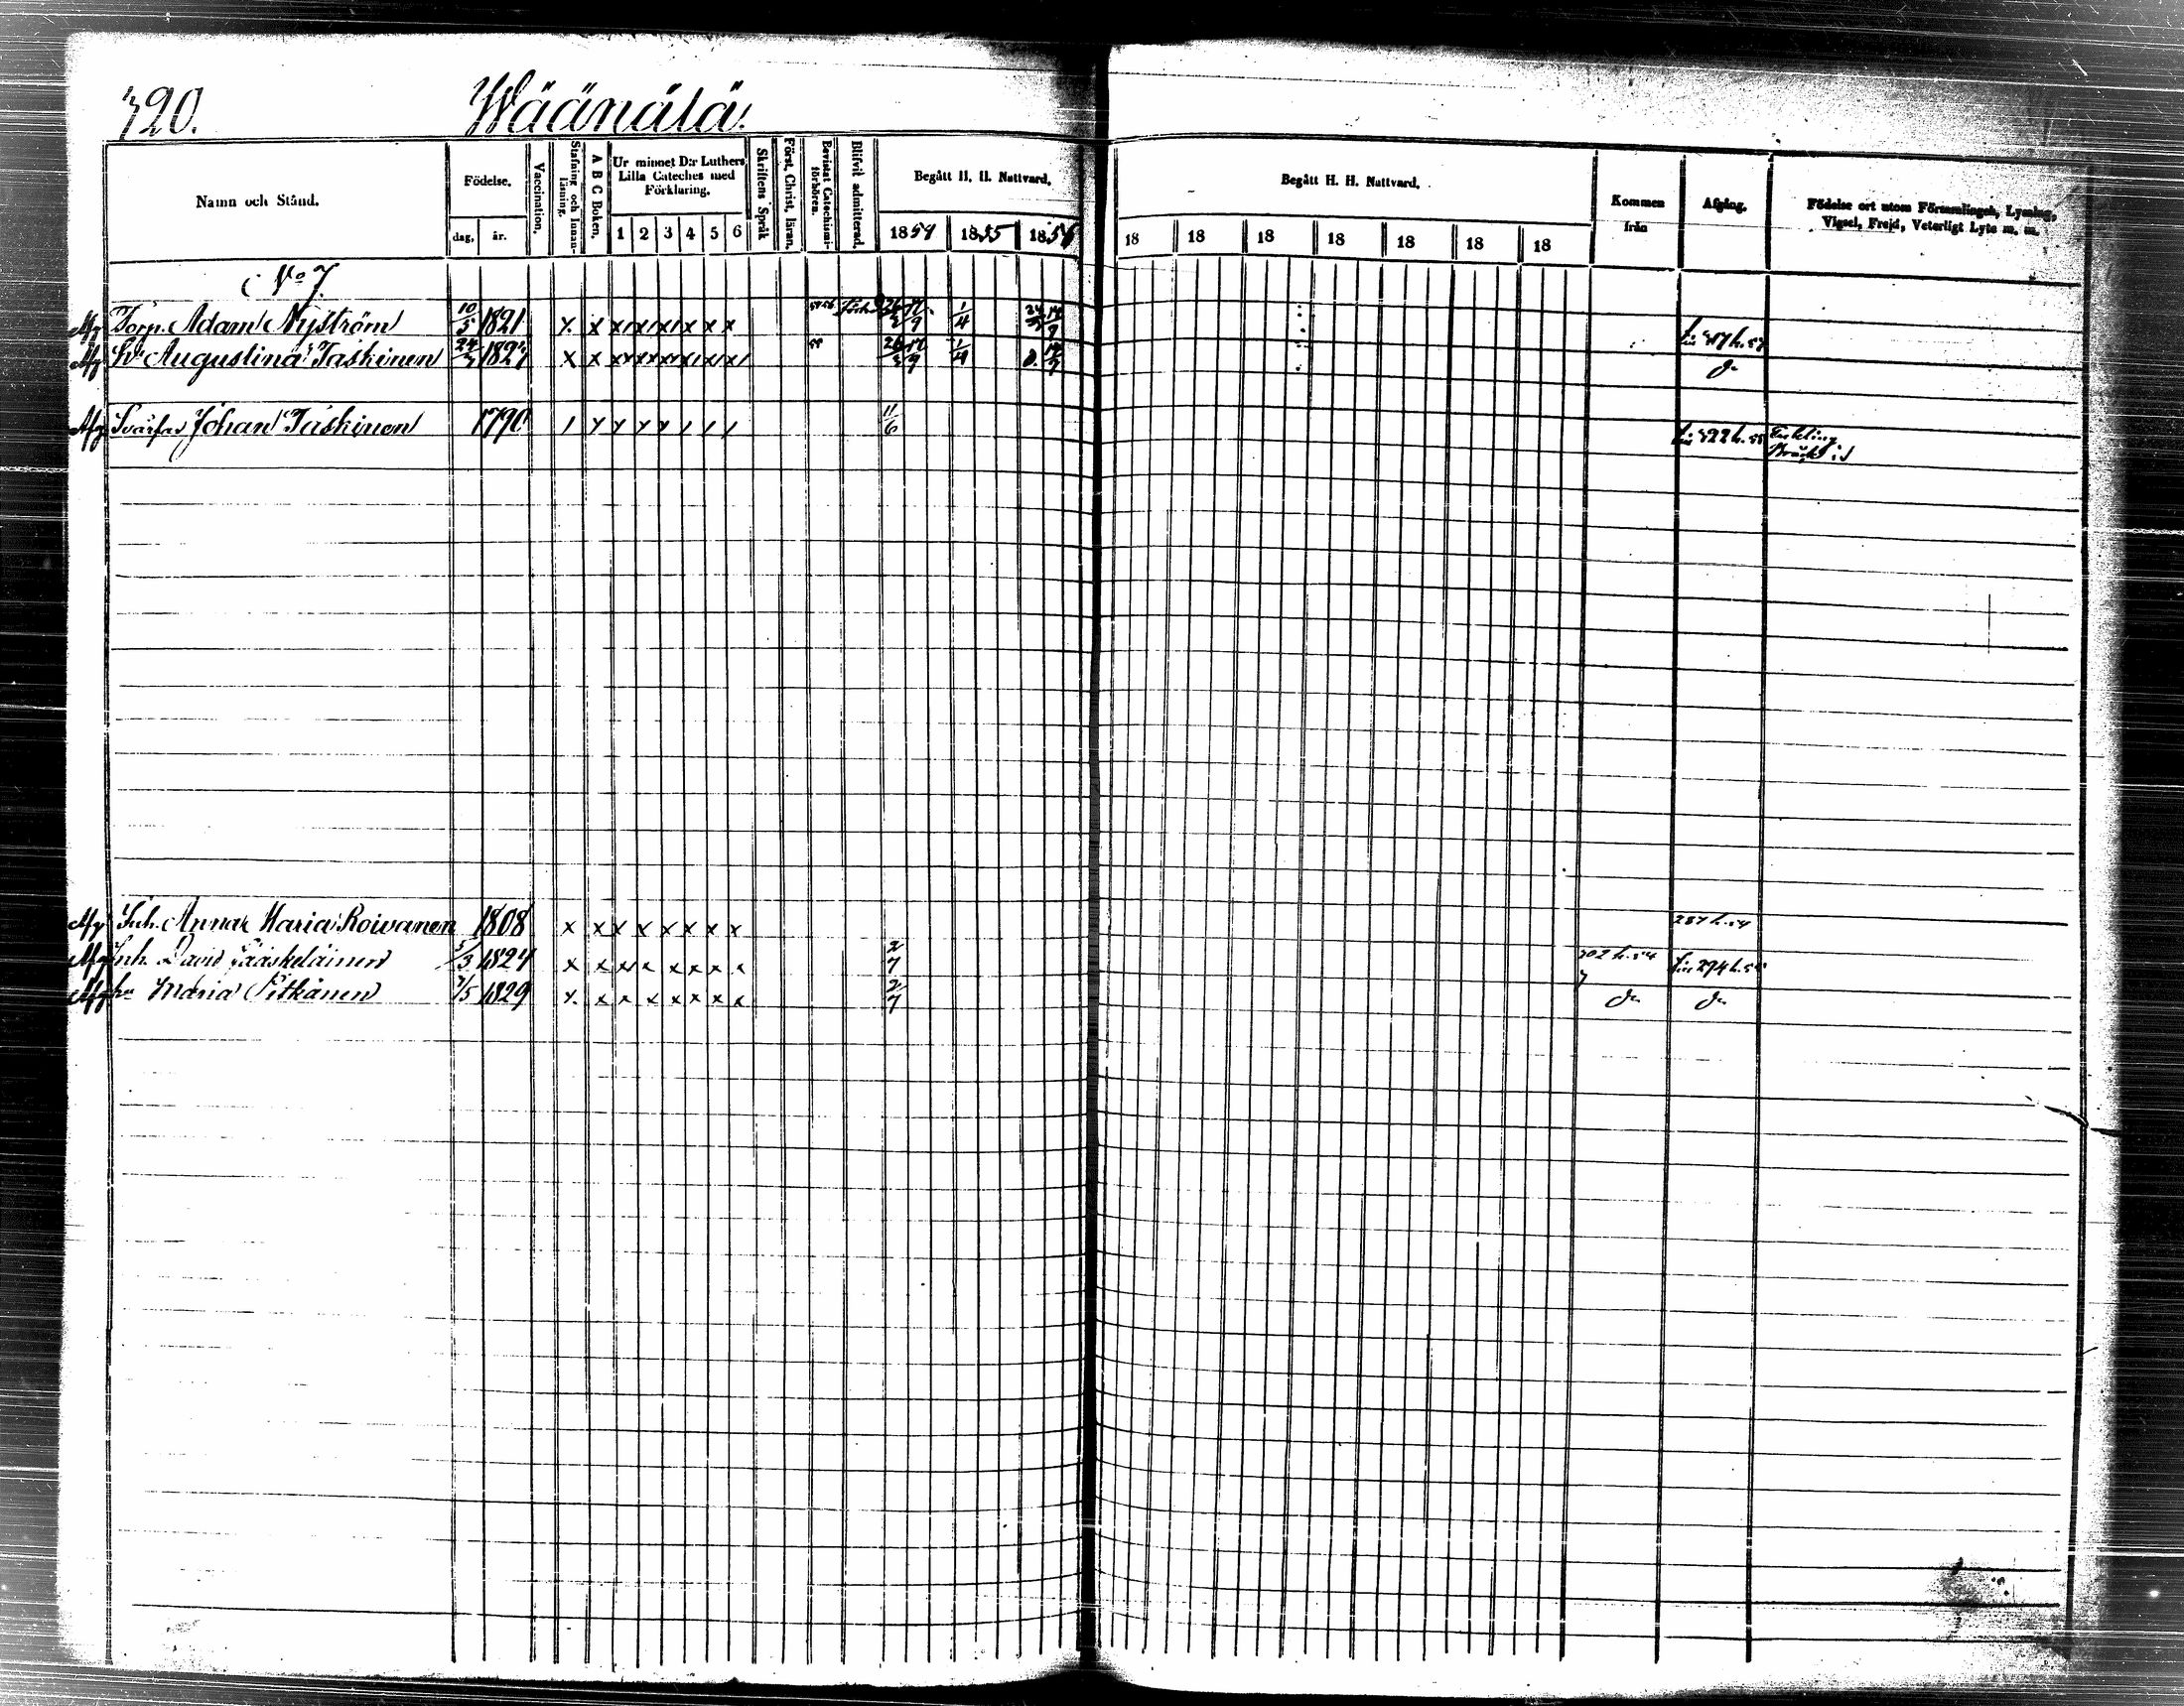 320. Wäänälä.
Namn och Stånd. Födelse. dag, år. Vaccination. Stafning och Innanläsning. A B C Boken. Ur minnet D:r Luthers Lilla Cateches med Förklaring. 1 2 3 4 5 6 Skriftens Språk Först. Christ. läran. Bevistat Catechismi-förhören. Blifvit admitterad. Begått H. H. Nattvard. 1854 1855 1856
Begått H. H. Nattvard. 18 18 18 18 18 18 18 Kommen från Afgång. Födelse ort utom Församlingen, Lysning, Vigsel, Frejd, Veterligt Lyte m. m.
No 7.
Afg Torp. Adam Nyström 10/5 1821 x x x x x x x x 26/3 17/9 1/4 24/3 14/9
Afg Hu Augustina Taskinen 24/7 1827 x x x x x x x x 26/3 17/9 1/4 14/9 do
Afg Svärfar Johan Taskinen 1790 11/6 322 h. 55 Enkling
Afg Inh. Anna Maria Roivanen 1808 x x x x x x x x 287 h. 54
Afg Inh. David Jääskeläinen 5/3 1824 x x x x x x x x 2/7 302 h. 54 294 h. 55
Afg hu Maria Pitkänen 7/5 1829 x x x x x x x x 2/7 do do